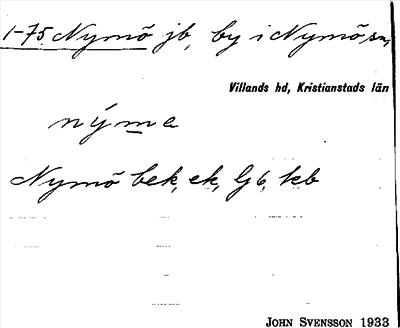 1-75 Nymö jb, by i Nymö, sn,
Villands hd, Kristianstads län
nýma
Nymö bek, ek, lj 6, kb
JOHN SVENSSON 1933